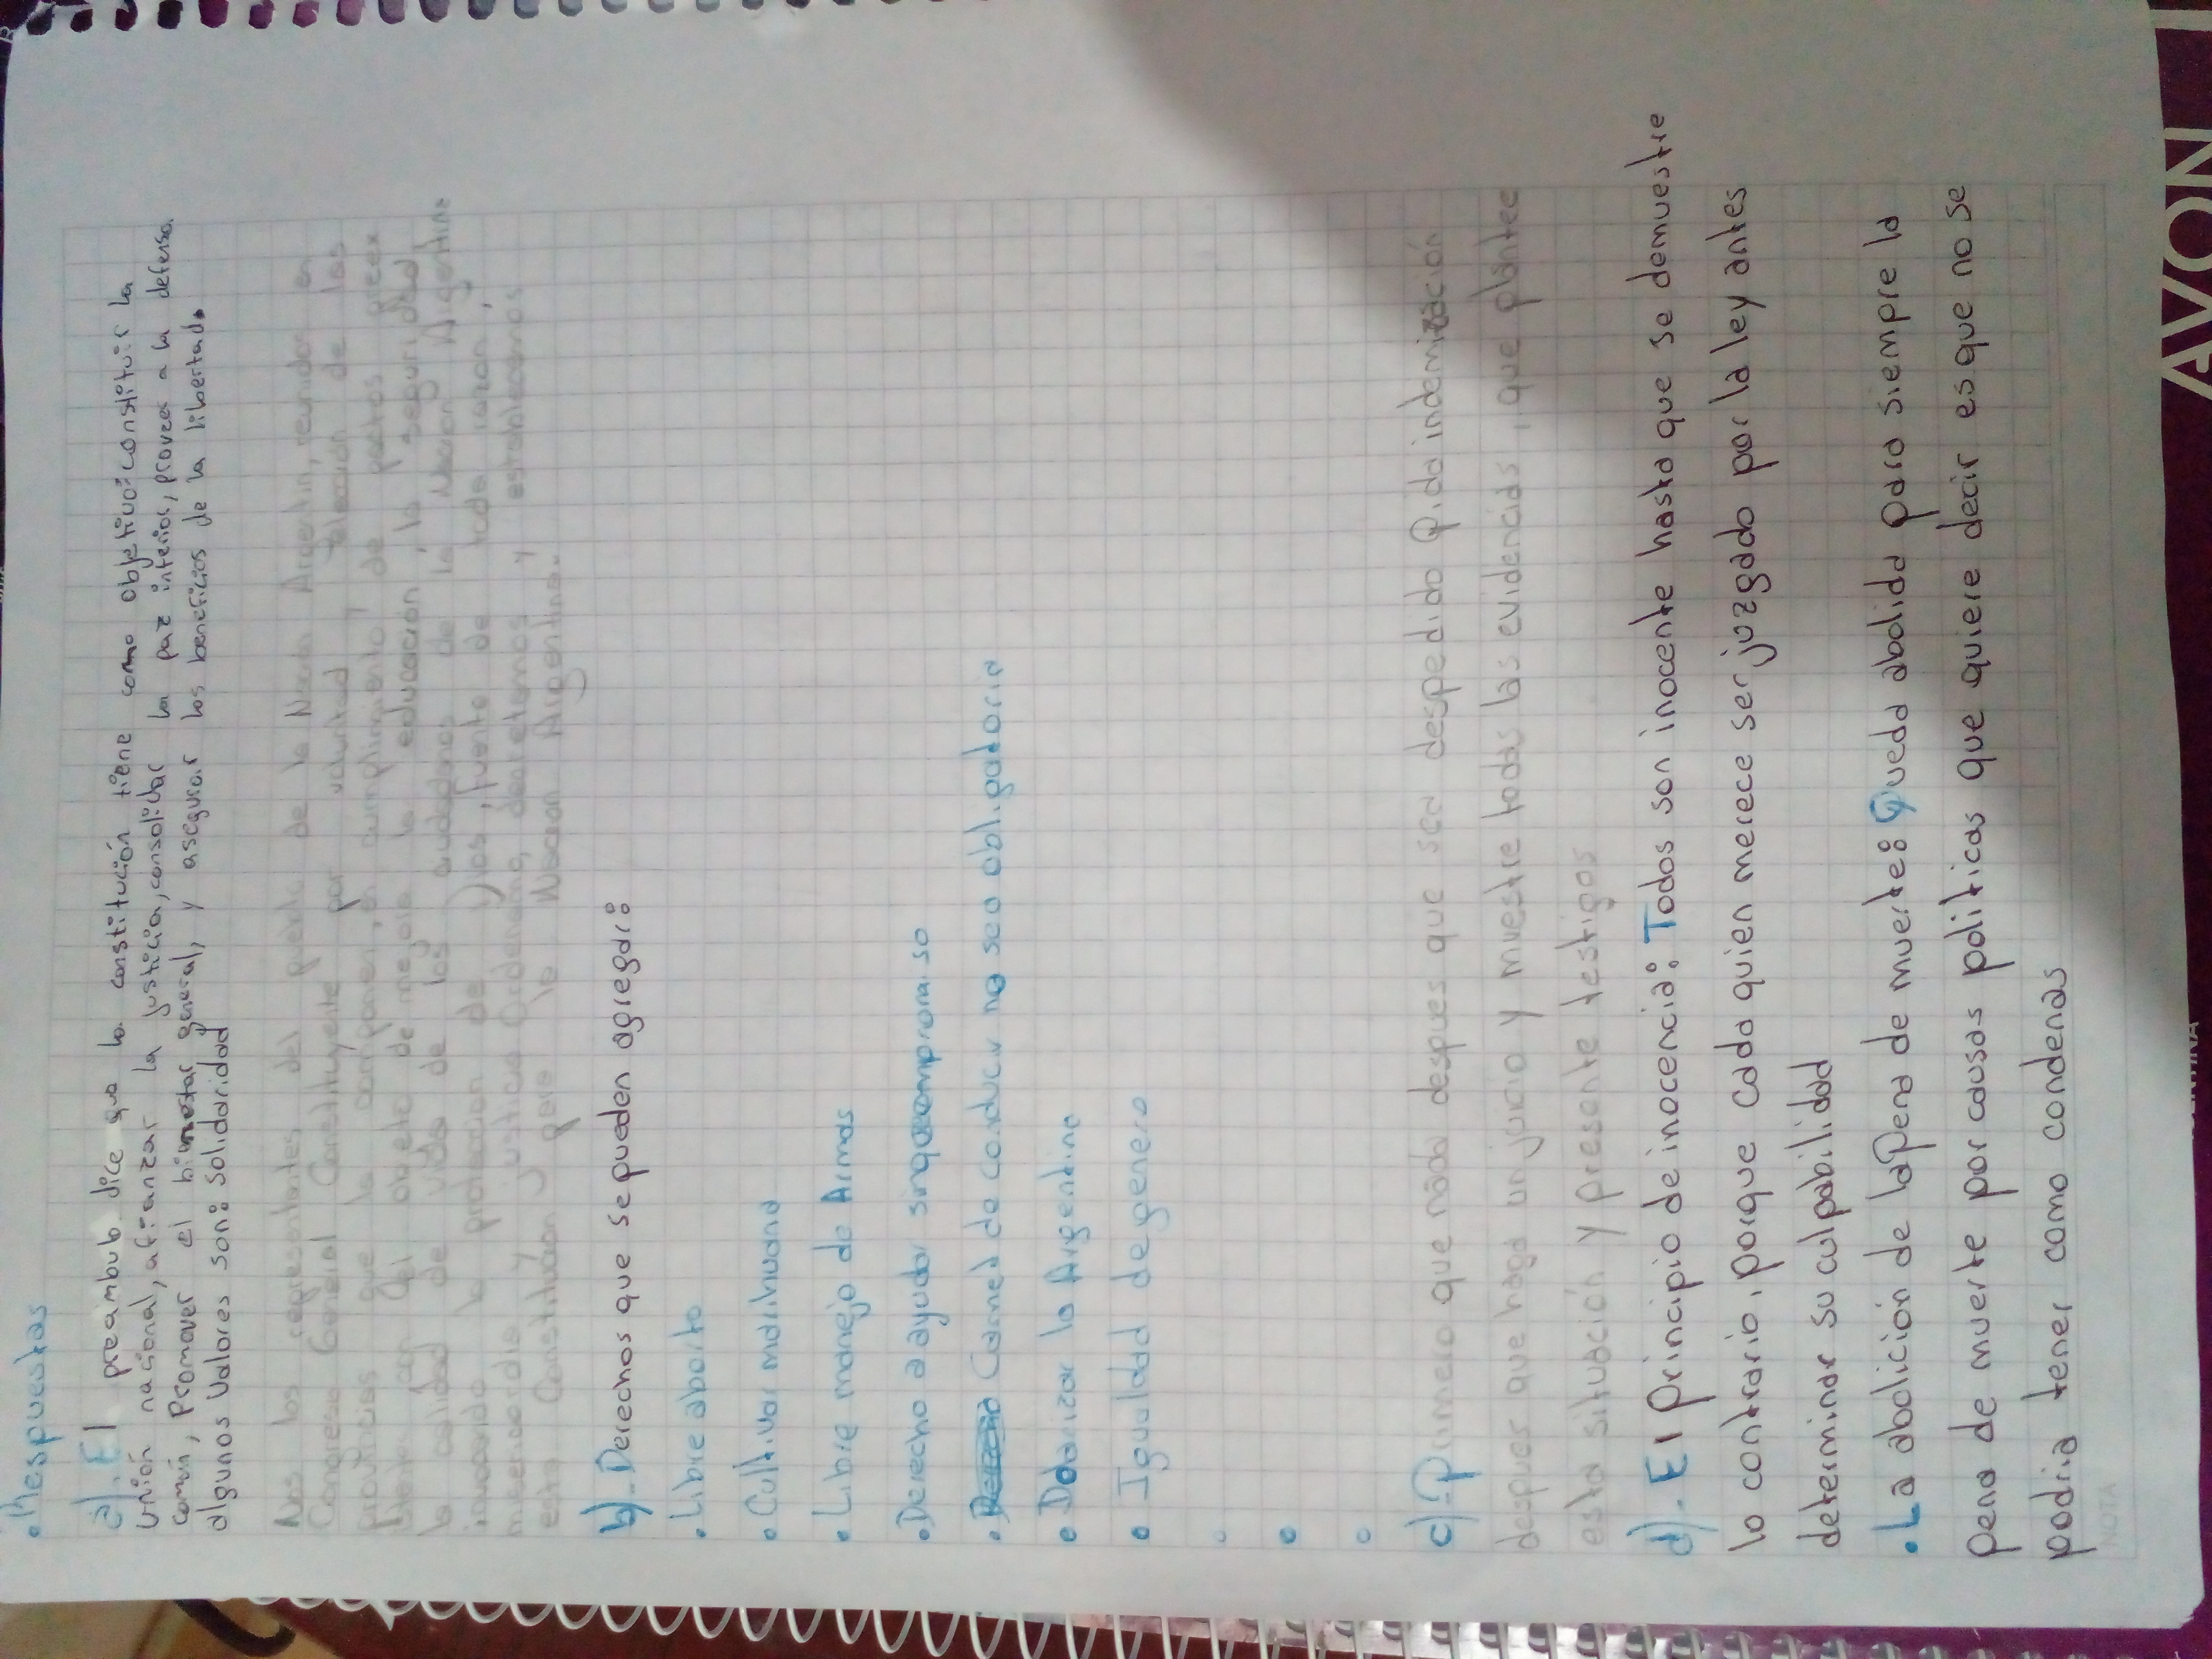 • Respuestas
a). El preámbulo dice que la constitución tiene como objetivo: constituir la
unión nacional, afianzar la justicia, consolidar la paz interior, proveer a la defensa
común, promover el binestar general, y asegurar los beneficios de la libertad.
algunos Valores son: solidaridad
Nos los representantes del pueblo de la Nación Argentin, reunidos en
Congreso General Constituyente por voluntad y elección de las
provincias que la componen, en cumplimiento de pactos preex
con del objeto de mejorar la educación, la seguridad
la calidad de vida de los ciudadanos de la Nación Argentina
invocando la protección de Dios, fuente de toda razon y
justicia Ordenamos, decretamos y establecemos
esta Constitución para la Nación Argentina.
b)_ Derechos que se pueden agregar:
• Libre aborto
• Cultivar marihuana
• Libre manejo de Armas
• Derecho a ayudar sin que
• Carnet de conducir no sea obligatorio
• la Argentina
• Igualdad de genero
c)_ Primero que nada despues que sea despedido Pida indemización
despues que haga un juicio y muestre todas las evidencias, que plantee
esta situación y presente testigos
d)_ El principio de inocencia: Todos son inocente hasta que se demuestre
lo contrario, porque cada quien merece ser juzgado por la ley antes
determinar su culpabilidad
• La abolición de la Pena de muerte: Queda abolida para siempre la
pena de muerte por causas politicas que quiere decir es que no se
podria tener como condenas
NOTA
AVON